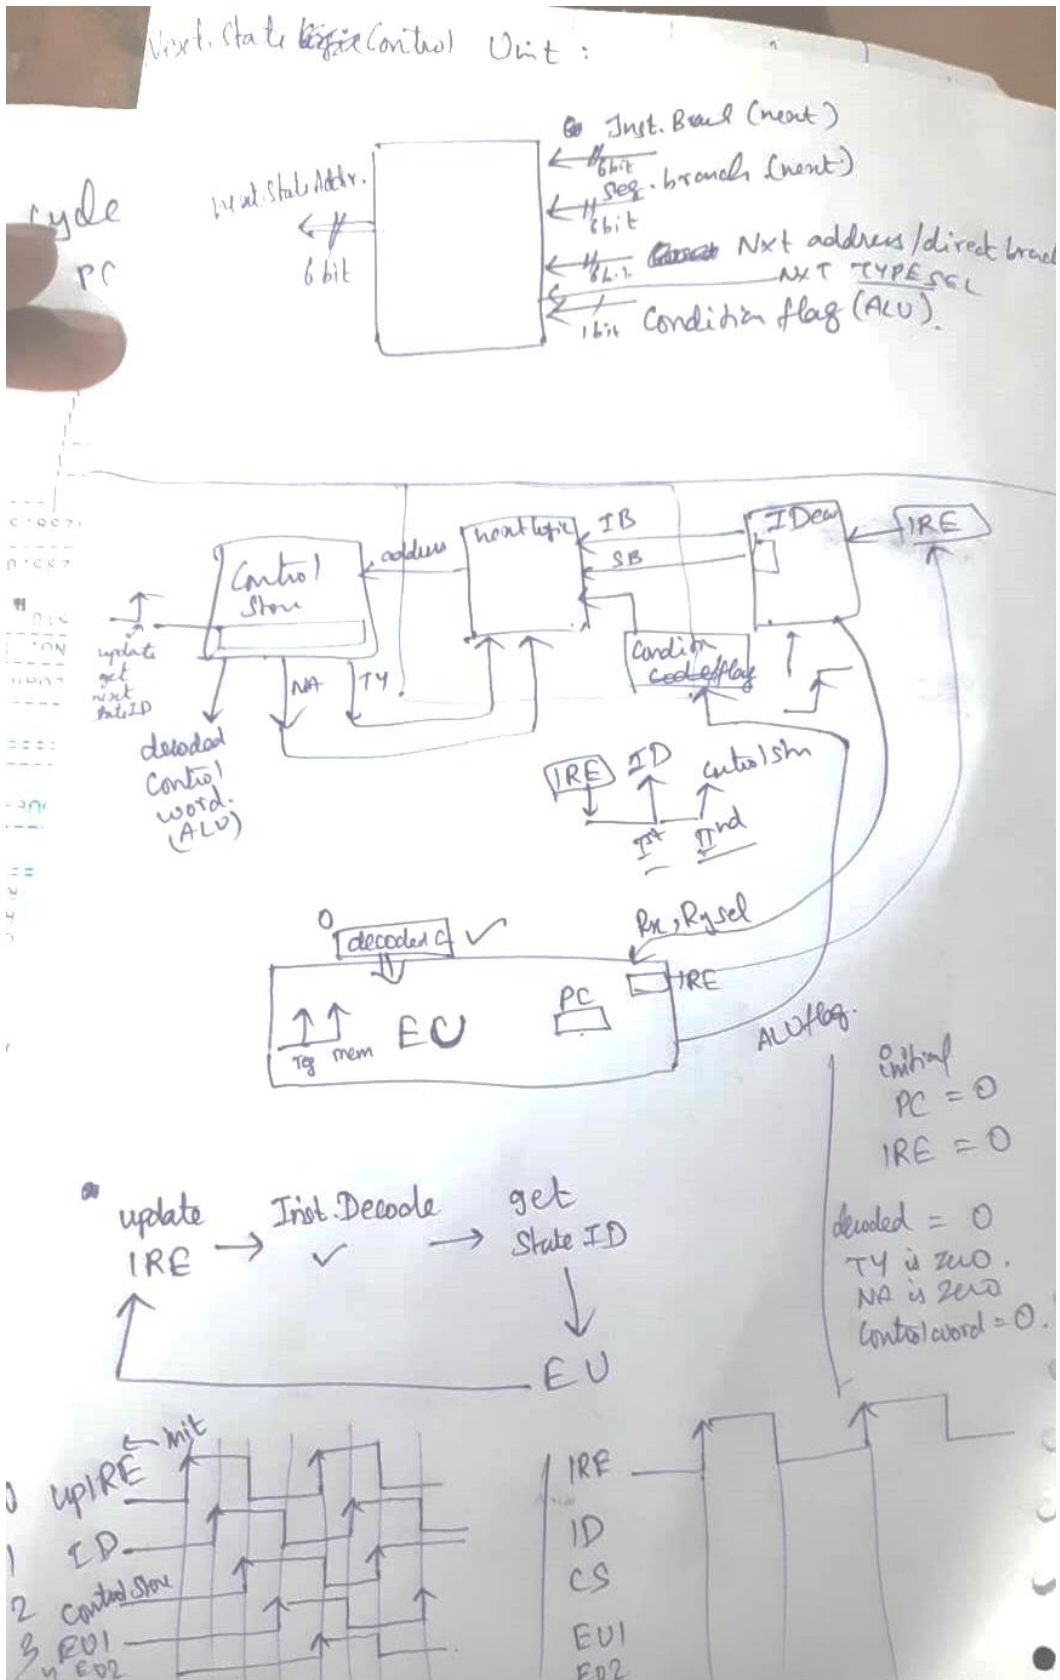 Next. State Control Unit :
cycle
PC
Next. State Addr.
6 bit
Inst. Branch (next)
6 bit
seq. branch (next)
6 bit
Nxt address/direct branch
6 bit
NXT TYPE SEL
1 bit
Condition flag (ALU).
Control
Store
address
next logic
IB
SB
IDec
IRE
update
get
next
state ID
NA
TY
Condition
code/flag
decoded
control
word.
(ALU)
IRE
ID
Control str
Ist
IInd
Rx, Ry sel
0
decoded C
IRE
PC
EU
reg
mem
ALU flag.
initial
PC = 0
IRE = 0
decoded = 0
TY is zero.
NA is zero
Control word = 0.
update
IRE
Inst. Decode
get
State ID
EU
init
0 upIRE
1 ID
2 Control Store
3 EU1
4 EU2
IRE
ID
CS
EU1
EU2